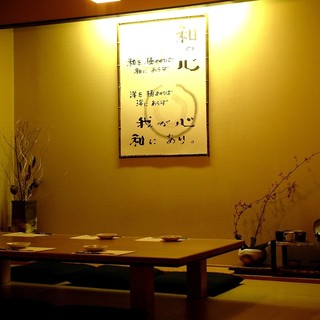 和の心
和を極めれば
和にあらず
洋を極めれば
洋にあらず
我が心
和にあり。